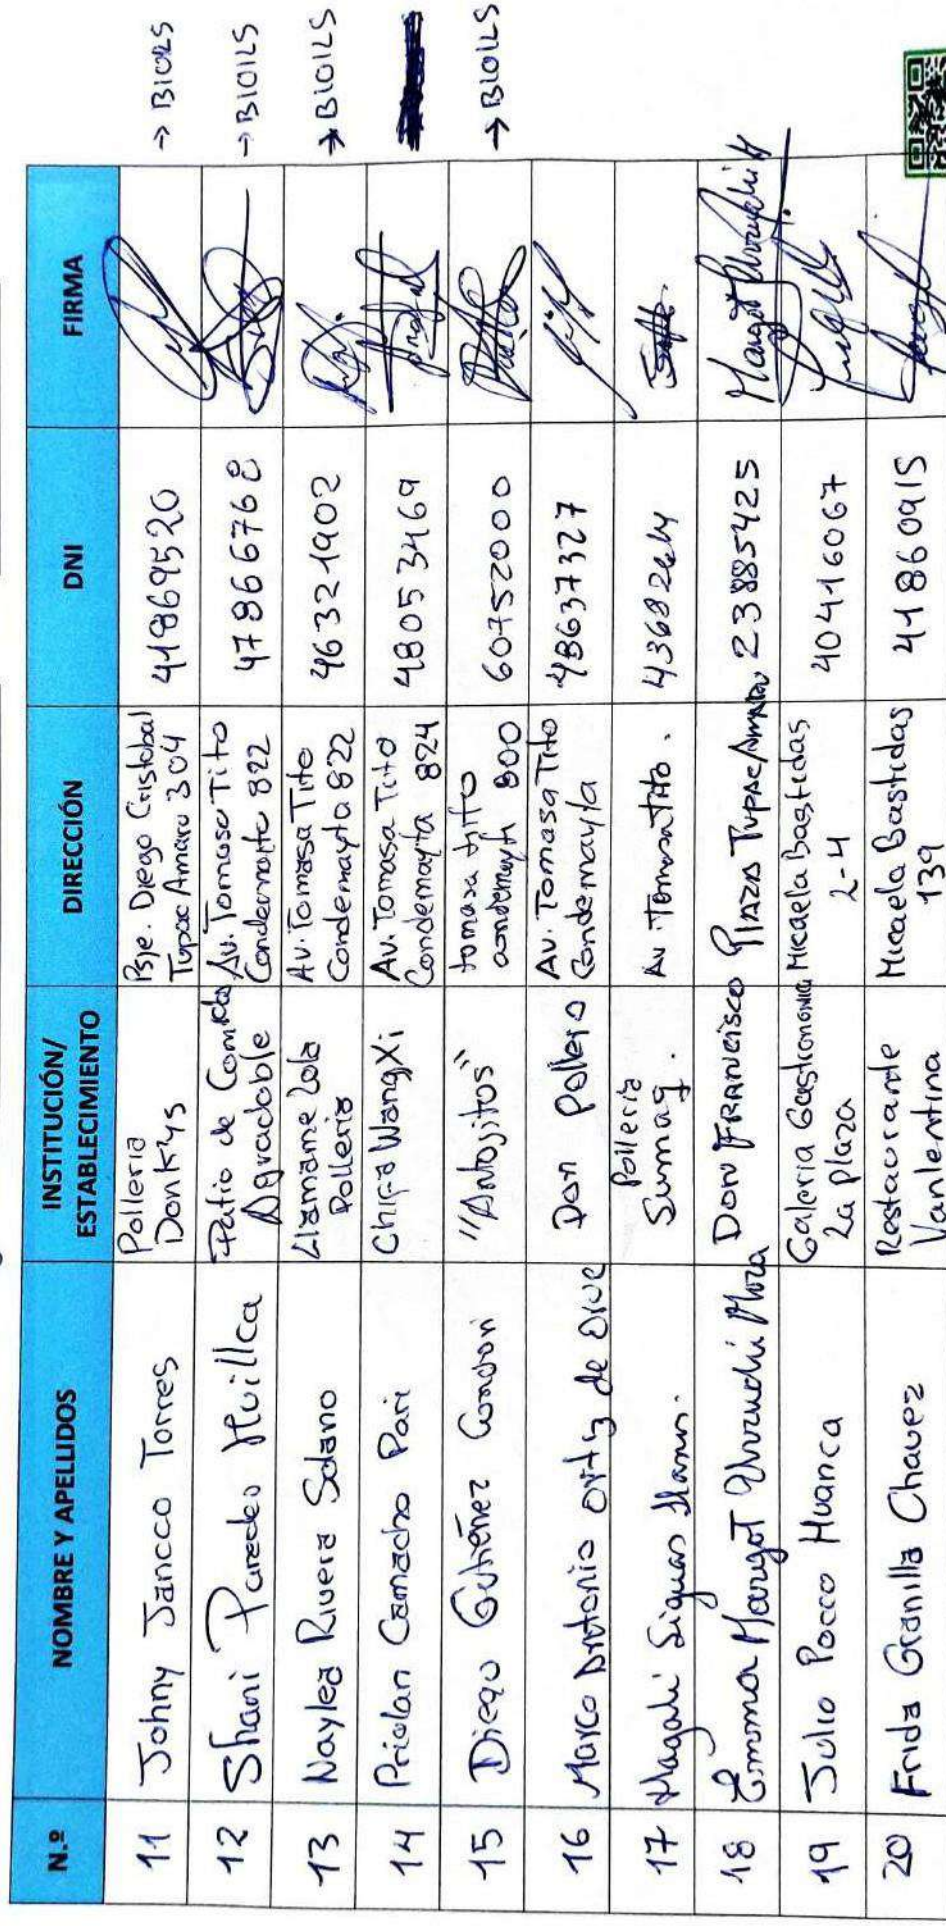 N.º NOMBRE Y APELLIDOS INSTITUCIÓN/ ESTABLECIMIENTO DIRECCIÓN DNI FIRMA
11 Johny Jancco Torres Polleria Donkys Psje. Diego Cristobal Tupac Amaru 304 41869520 → BIOILS
12 Shani Paredes Huillca Patio de Comidas Agradable Av. Tomasa Tito Condemayta 822 47866768 → BIOILS
13 Naylea Rivera Solano Llamame Lola Polleria Av. Tomasa Tito Condemayta 822 46321902 → BIOILS
14 Camacho Pari Chifa WangXi Av. Tomasa Tito Condemayta 824 48053469
15 Diego Gutiérrez Condori "Antojitos" tomasa tito condemayta 800 60752000 → BIOILS
16 Marco Antonio Ortiz de Orue Don Pollero Av. Tomasa Tito Condemayta 48637327
17 Magahi Siguas Polleria Sumaq. Av. Tomasa Tito.
18 Emma Margot Urruchi Moza Don FRANCISCO PlAZA TUPAC AMARU 23885425 Margot Urruchi M
19 Julio Pocco Huanca Galeria Gastronomia La plaza Micaela Bastidas 2-4 40416067
20 Frida Granilla Chavez Restaurante Vanlentina Micaela Bastidas 139 41860915